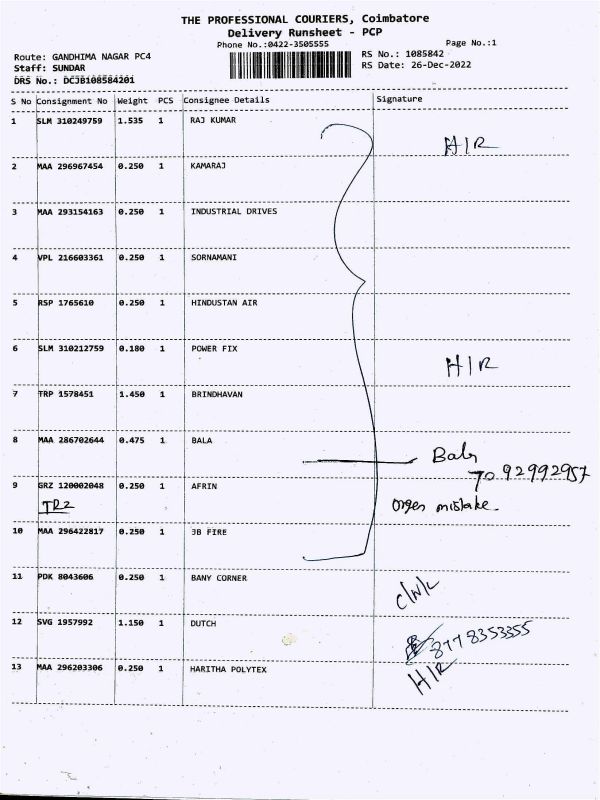 THE PROFESSIONAL COURIERS, Coimbatore
Delivery Runsheet - PCP
Phone No.:0422-3505555
Page No.:1
Route: GANDHIMA NAGAR PC4
RS No.: 1085842
Staff: SUNDAR
RS Date: 26-Dec-2022
DRS No.: DCJB108584201
S No Consignment No Weight PCS Consignee Details Signature
1 SLM 310249759 1.535 1 RAJ KUMAR
H/R
2 MAA 296967454 0.250 1 KAMARAJ
3 MAA 293154163 0.250 1 INDUSTRIAL DRIVES
4 VPL 216603361 0.250 1 SORNAMANI
5 RSP 1765610 0.250 1 HINDUSTAN AIR
6 SLM 310212759 0.180 1 POWER FIX
H/R
7 TRP 1578451 1.450 1 BRINDHAVAN
8 MAA 286702644 0.475 1 BALA
7092992957
9 GRZ 120002048 0.250 1 AFRIN
TRZ mistake
10 MAA 296422817 0.250 1 JB FIRE
11 PDK 8043606 0.250 1 BANY CORNER
12 SVG 1957992 1.150 1 DUTCH
8778353355
13 MAA 296203306 0.250 1 HARITHA POLYTEX
H/R